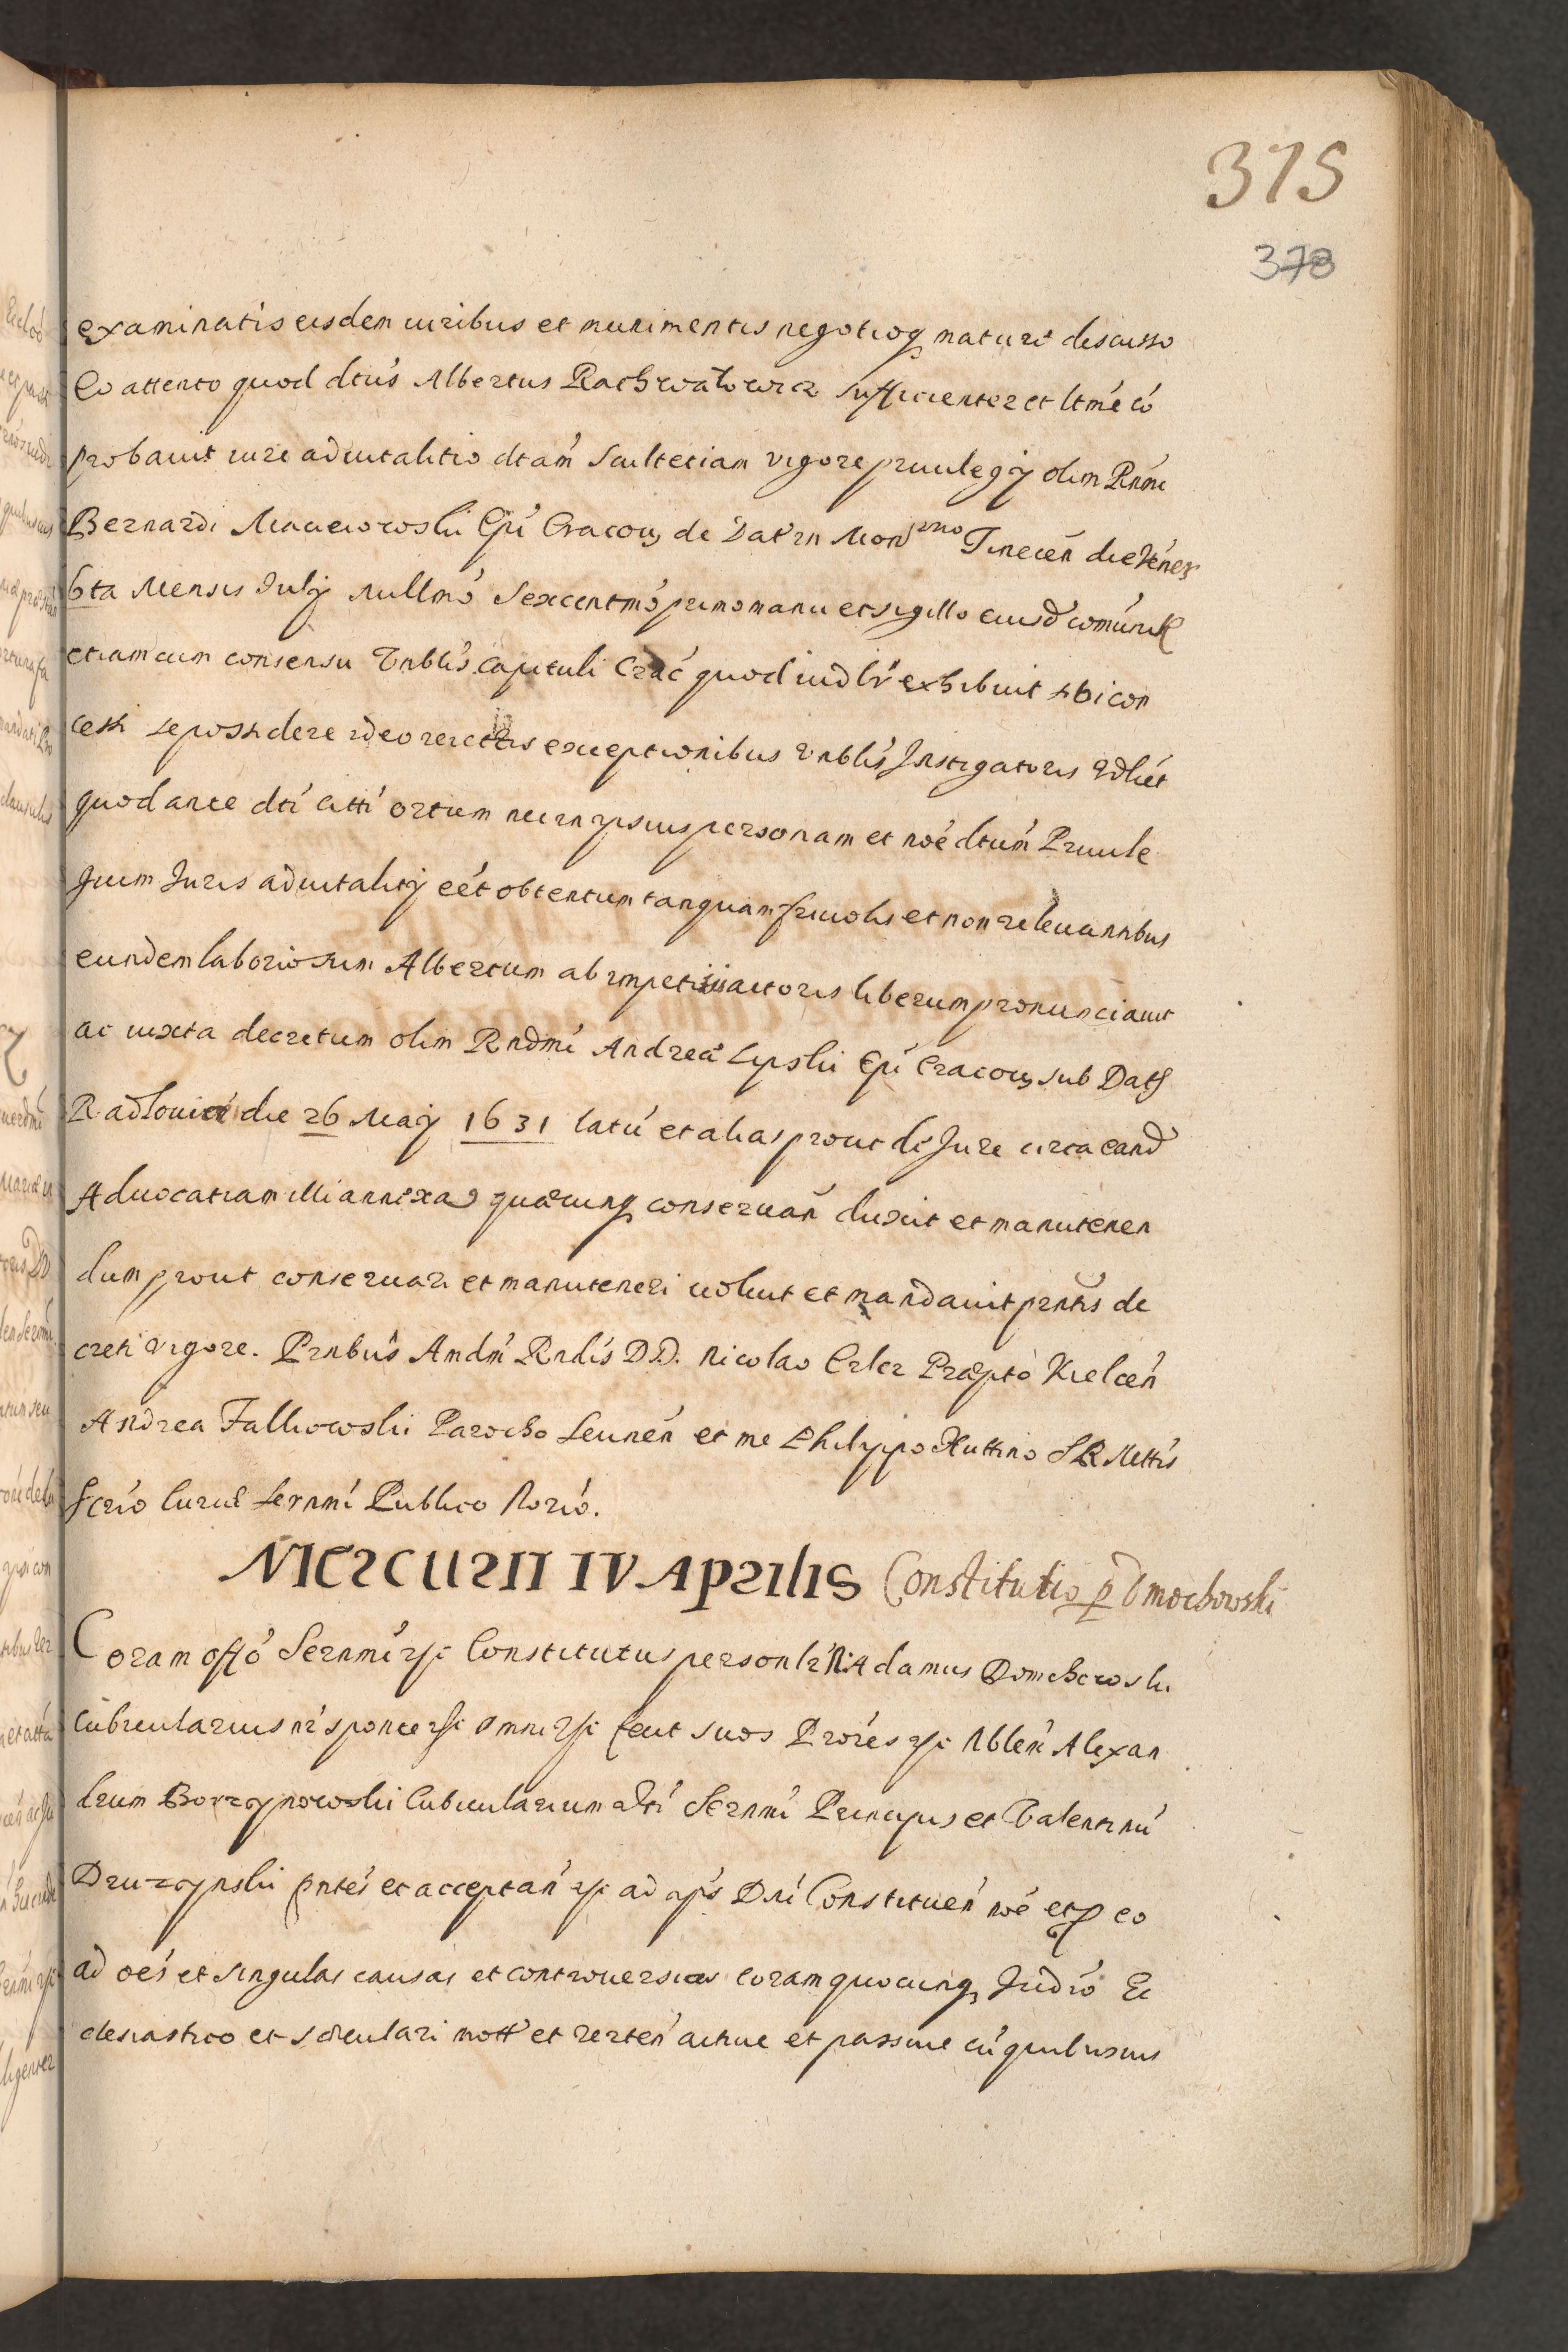 375
378
examinatis eisdem iuribus et munimentis negotioq mature discusso
Eo attento quod dtus Albertus Rachwałowicz sufficienter et ltme có
probauit iure aduitalitio dtam Scultetiam vigore priuilegij olim Rnmi
Bernardi Macieiowski Epi Cracou de Dat in Monrio Tinecen die Vener
6ta Mensis Julij millmo Sexcentmo primo manu et sigillo eiusd comunit
etiam cum consensu Vnblis Capituli Crac quod iudlr exhibuit sibi con
cessi se possidere ideo reiectis exceptionibus Vnblis Instigatoris
quod ante dti citti ortum nec in ipsius personam et noe dtum Priuile
gium Juris aduitalitij eet obtentum tanquam friuolis et non releuantibus
eundem laboriosum Albertum ab impetitii actoris liberum pronunciauit
ac iuxta decretum olim Rndmi Andreæ Lipski Epi Cracou sub Dat
Radlouice die 26 Maij 1631 latú et alias prout de Jure circa eand
Aduocatiam illi annexa quæcunq conseruan duxit et manutenen
dum prout conseruari et manuteneri voluit et mandauit pntis de
creti vigore. Pntbus Amdm Rndis DD. Nicolao Erler Præpto Kielcen
Andrea Falkowski Parocho Leunen et me Philippo Huttino SR Mettis
scrio Curiæ Sernmi Publico Norio.
Mercurii IV Aprilis Constitutio p Dmochowski
Coram offo Sernmi rsi Constitutus personlr N: Adamus Domchowski
Cubicularius nr sponte rsi omni rsi fecit suos Prores rsi Nblem Alexan
drum Borzynowski Cubicularium dti Sernmi Principis et Valentinú
Druzynski pntes et acceptan rsi ad ips Dni Constituen noe et p eo
ad oes et singulas causas et controuersias coram quocunq Judio Ec
clesiastico et sæculari mott et verten actiue et passiue cú quibusuis